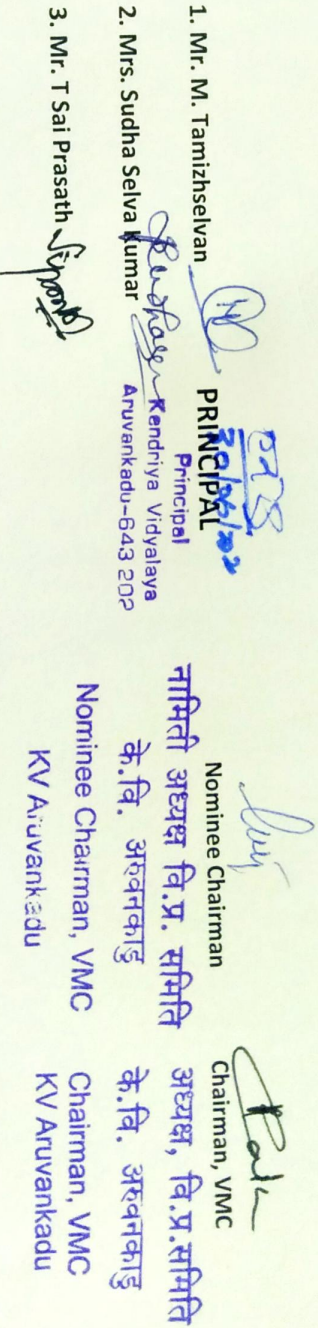 1. Mr. M. Tamizhselvan
2. Mrs. Sudha Selva Kumar
3. Mr. T Sai Prasath
PRINCIPAL
Principal
Kendriya Vidyalaya
Aruvankadu-643 202
Nominee Chairman
नामिती अध्यक्ष वि.प्र. समिति
के.वि. अरुवनकाडु
Nominee Chairman, VMC
KV Aruvankadu
Chairman, VMC
अध्यक्ष, वि.प्र.समिति
के.वि. अरुवनकाडु
Chairman, VMC
KV Aruvankadu